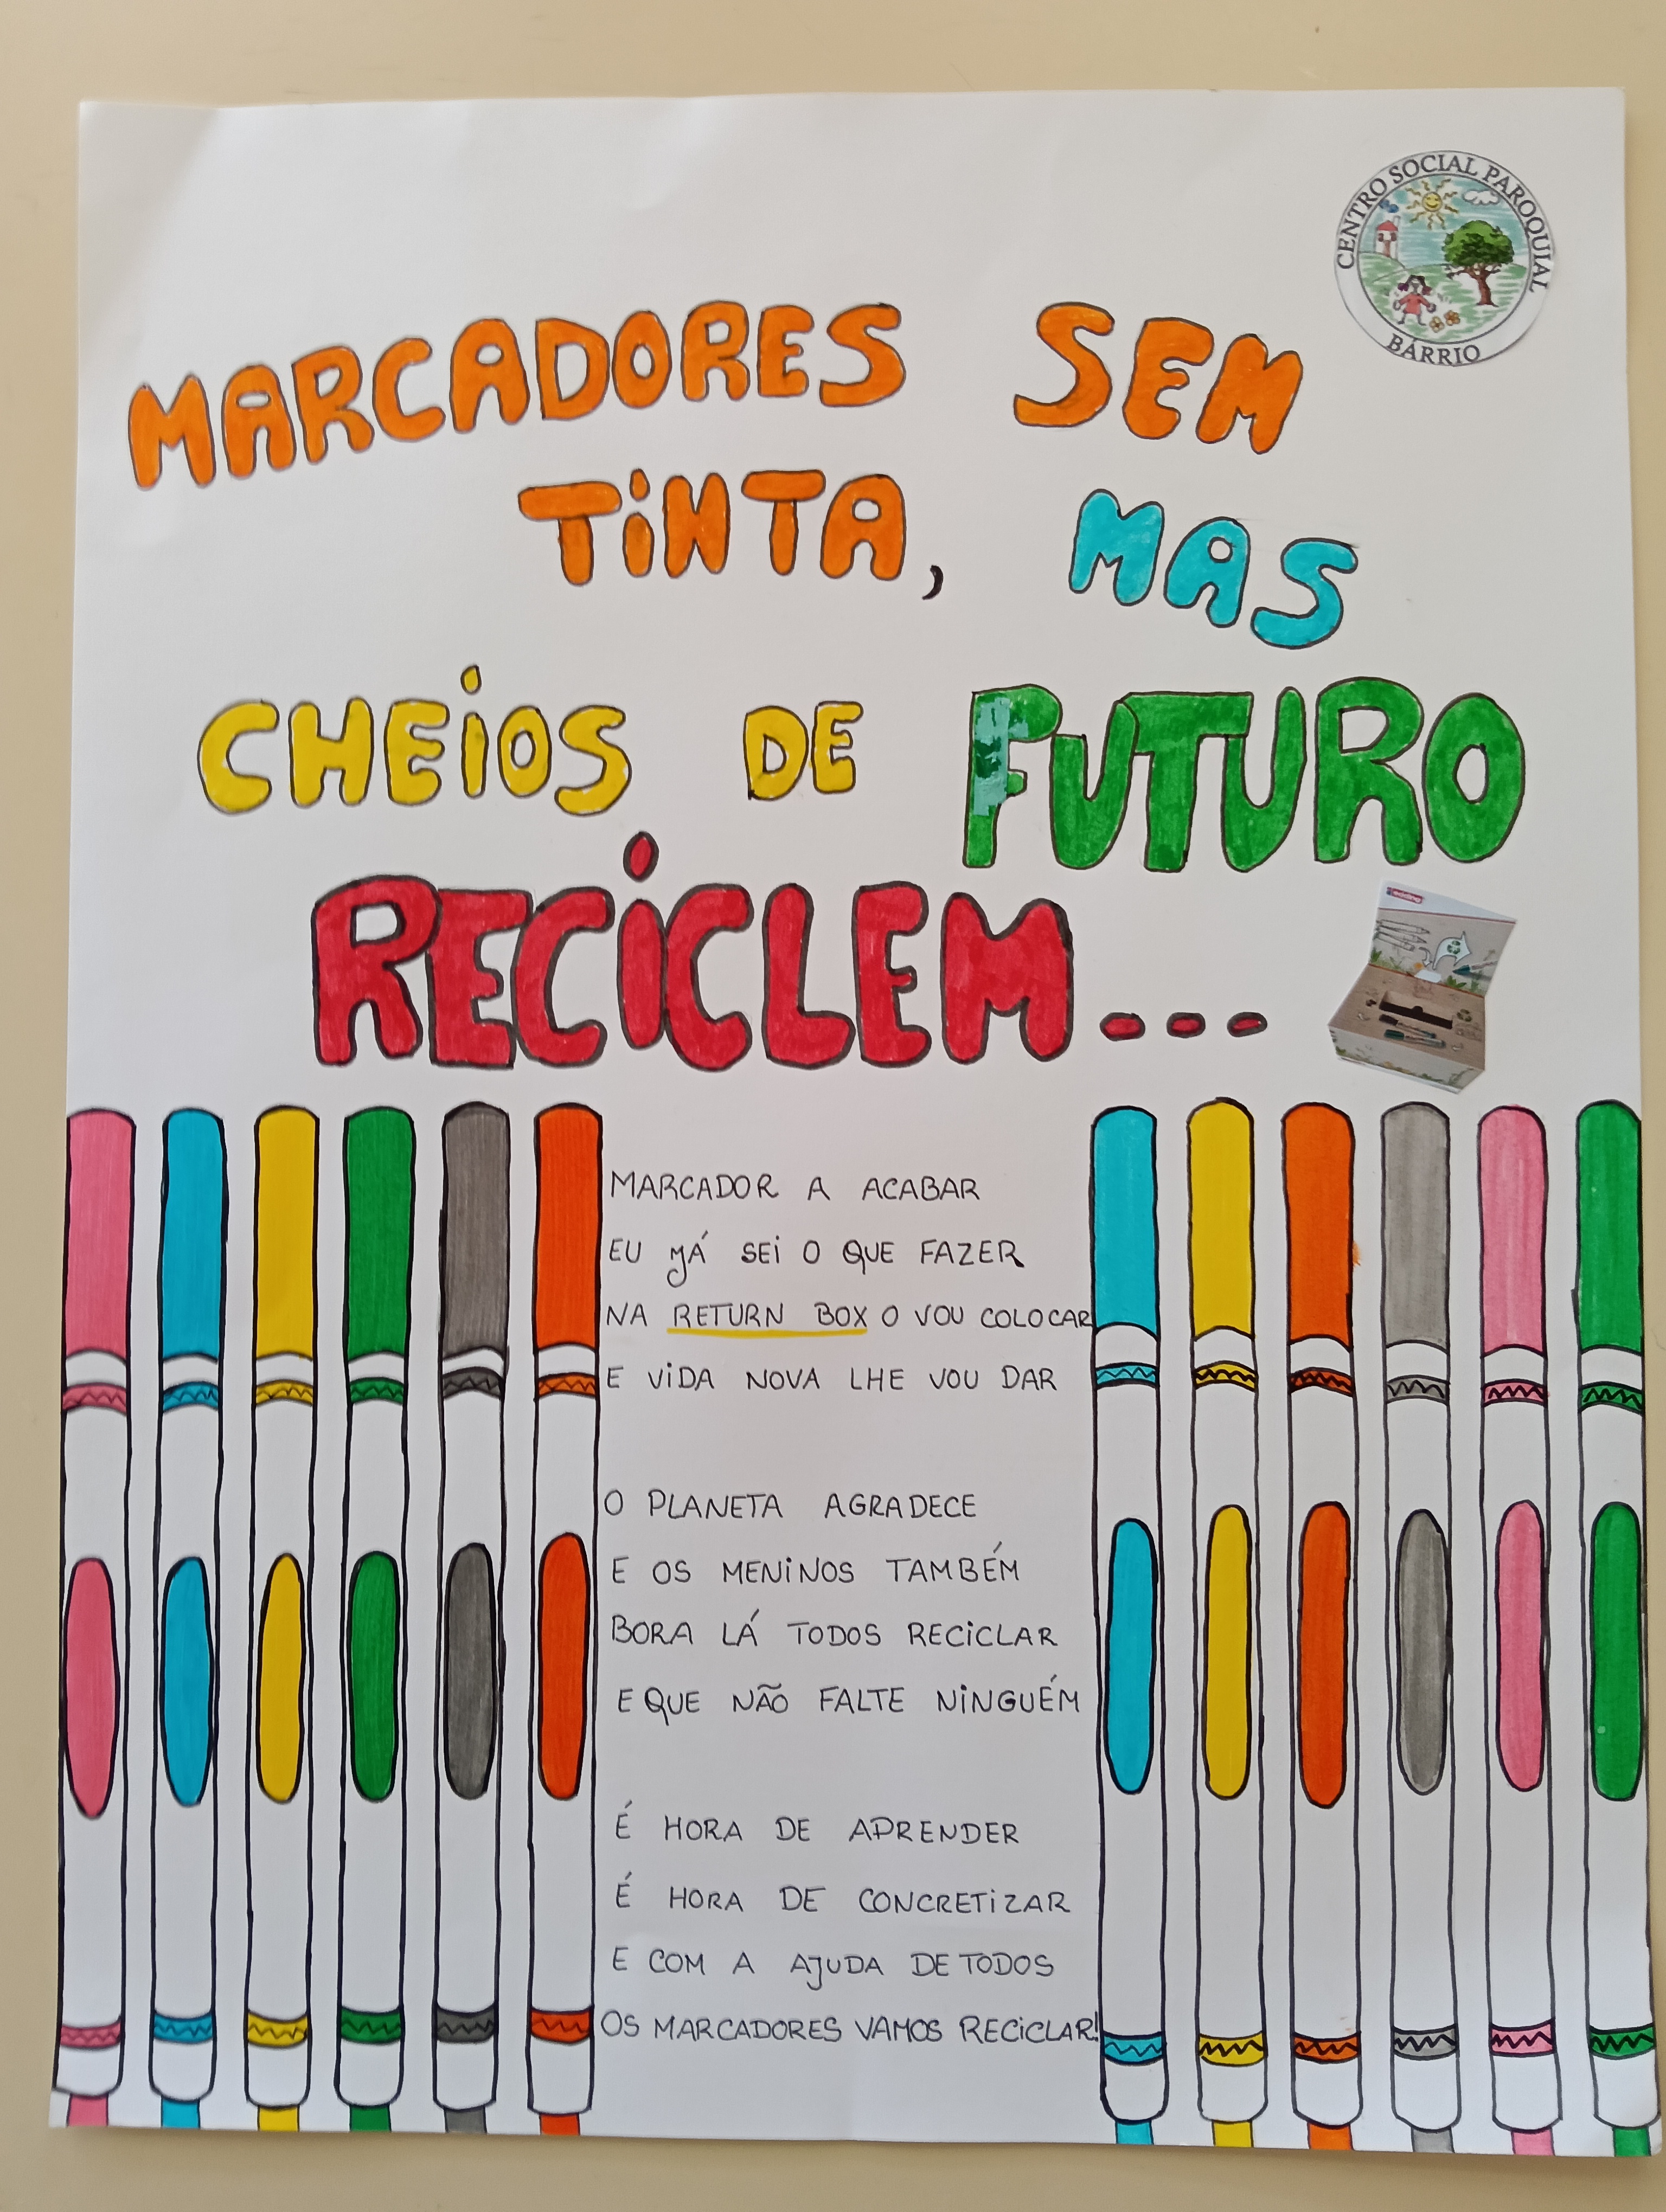 CENTRO SOCIAL PAROQUIAL
BÁRRIO
MARCADORES SEM
TINTA, MAS
CHEIOS DE FUTURO
RECICLEM...
edding
MARCADOR A ACABAR
EU JÁ SEI O QUE FAZER
NA RETURN BOX O VOU COLOCAR
E VIDA NOVA LHE VOU DAR
O PLANETA AGRADECE
E OS MENINOS TAMBÉM
BORA LÁ TODOS RECICLAR
E QUE NÃO FALTE NINGUÉM
É HORA DE APRENDER
É HORA DE CONCRETIZAR
E COM A AJUDA DE TODOS
OS MARCADORES VAMOS RECICLAR!